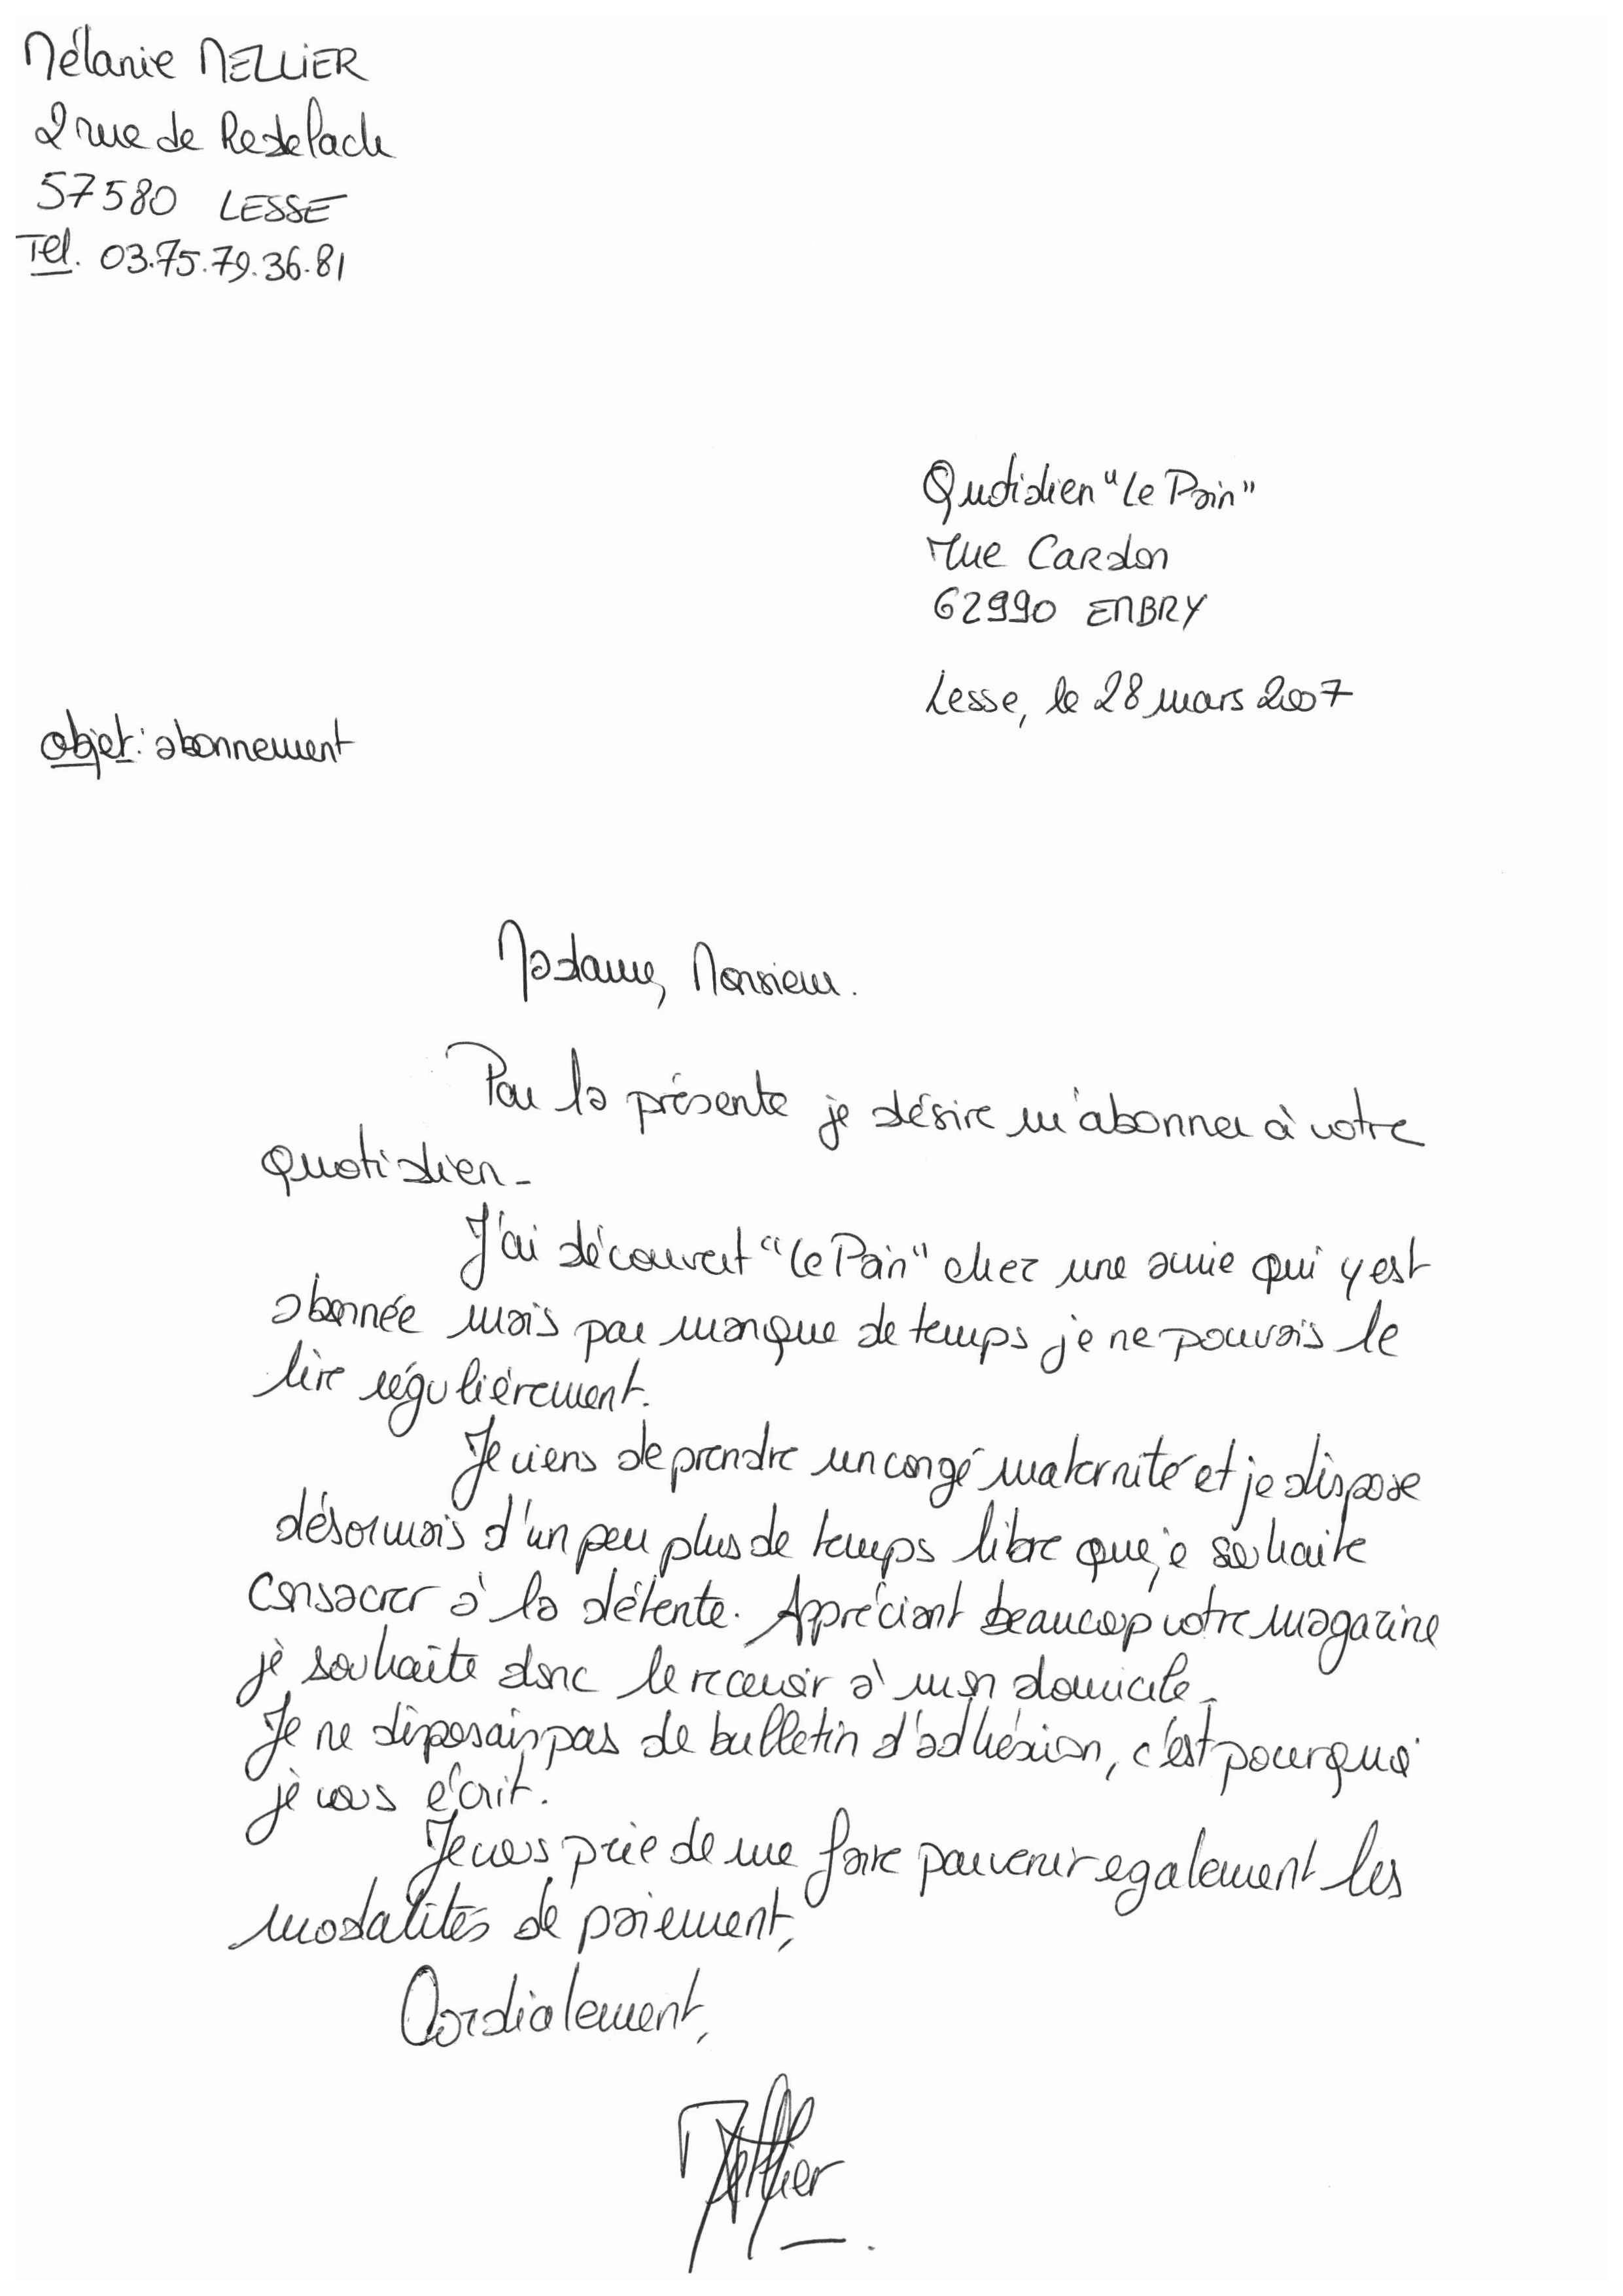 Mélanie MELLIER
2 rue de Redelach
57580 LESSE
Tel. 03.75.79.36.81
Quotidien "Le Pain"
rue Cardon
62990 EMBRY
Lesse, le 28 mars 2007
objet : abonnement
Madame, Monsieur.
Par la présente je désire m'abonner à votre
quotidien.
J'ai découvert "Le Pain" chez une amie qui y est
abonnée mais par manque de temps je ne pouvais le
lire régulièrement.
Je viens de prendre un congé maternité et je dispose
désormais d'un peu plus de temps libre que je souhaite
consacrer à la détente. Appréciant beaucoup votre magazine
je souhaite donc le recevoir à mon domicile.
Je ne disposais pas de bulletin d'adhésion, c'est pourquoi
je vous écrit.
Je vous prie de me faire parvenir egalement les
modalités de paiement,
Cordialement,
Mellier